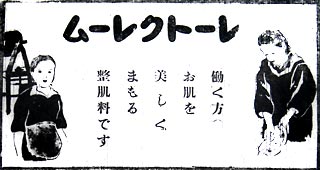 レートクレーム
働く方の
お肌を
美しく
まもる
整肌料です